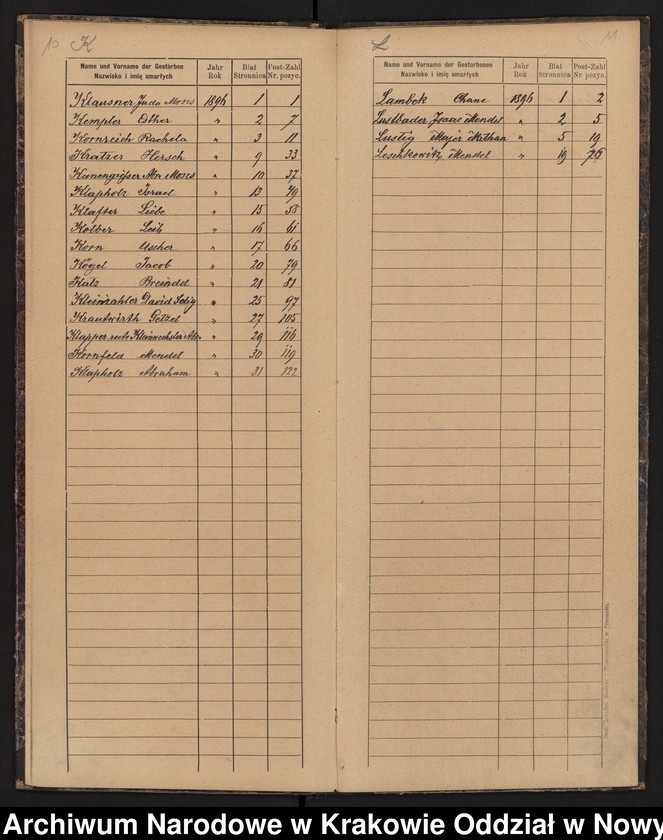 10 K
Name und Vorname der Gestorben
Nazwisko i imię umarłych
Jahr
Rok
Blat
Stronnica
Post-Zahl
Nr. pozyc.
Klausner Juda Moses 1896 1 1
Kempler Esther " 2 7
Kornreich Rachela " 3 11
Kratzer Hersch " 9 33
Kanengiesser Abr. Moses " 10 37
Klapholz Israel " 13 49
Klafter Liebe " 15 58
Kolber Leib " 16 61
Korn Uscher " 17 66
Kögel Jacob " 20 79
Katz Breindel " 21 81
Kleinzahler David Selig " 25 97
Krautwirth Getzel " 27 105
Klapper recte Abr. " 29 116
Kornfeld Mendel " 30 119
Klapholz Abraham " 31 122
L 11
Name und Vorname der Gestorbenen
Nazwisko i imię umarłych
Jahr
Rok
Blat
Stronnica
Post-Zahl
Nr. pozyc.
Lambek Chane 1896 1 2
Lustbader Isaac Mendel " 2 5
Lustig Majer Nathan " 5 19
Leschkowitz Mendel " 19 75
Archiwum Narodowe w Krakowie Oddział w Nowy